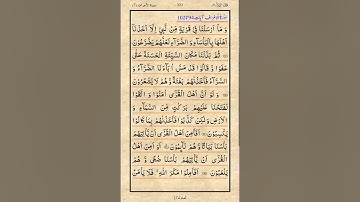 وَ مَاۤ اَرْسَلْنَا فِیْ قَرْیَةٍ مِّنْ نَّبِیٍّ اِلَّاۤ اَخَذْنَاۤ
اَهْلَهَا بِالْبَاْسَآءِ وَ الضَّرَّآءِ لَعَلَّهُمْ یَضَّرَّعُوْنَ
ثُمَّ بَدَّلْنَا مَكَانَ السَّیِّئَةِ الْحَسَنَةَ حَتّٰى
عَفَوْا وَّ قَالُوْا قَدْ مَسَّ اٰبَآءَنَا الضَّرَّآءُ وَ
السَّرَّآءُ فَاَخَذْنٰهُمْ بَغْتَةً وَّ هُمْ لَا یَشْعُرُوْنَ
وَ لَوْ اَنَّ اَهْلَ الْقُرٰۤى اٰمَنُوْا وَ اتَّقَوْا
لَفَتَحْنَا عَلَیْهِمْ بَرَكٰتٍ مِّنَ السَّمَآءِ وَ
الْاَرْضِ وَ لٰكِنْ كَذَّبُوْا فَاَخَذْنٰهُمْ بِمَا كَانُوْا
یَكْسِبُوْنَ اَفَاَمِنَ اَهْلُ الْقُرٰۤى اَنْ یَّاْتِیَهُمْ
بَاْسُنَا بَیَاتًا وَّ هُمْ نَآىٕمُوْنَ اَوَ اَمِنَ اَهْلُ
الْقُرٰۤى اَنْ یَّاْتِیَهُمْ بَاْسُنَا ضُحًى وَّ هُمْ
یَلْعَبُوْنَ اَفَاَمِنُوْا مَكْرَ اللّٰهِ فَلَا یَاْمَنُ